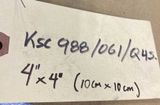 Ksc 988/061/Q45.
4" x 4" (10cm x 10cm)